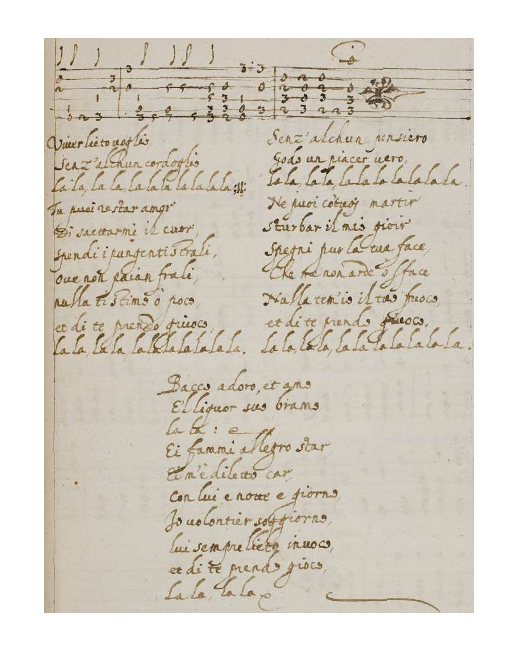 Viver lieto voglio
Senz'alchun cordoglio
la la, la la, la la la la la la la :||:
Tu puoi restar amor
Di saettarmi il cuor,
spendi i pungenti strali,
ove non paian frali,
nulla ti stimo ò poco,
et di te prendo giuoco,
la la, la la, la la la la la la la.
Senz'alchun pensiero
Godo un piacer vero,
la la, la la, la la la la la la la.
Ne puoi cotesti martir
sturbar il mio gioir
spegni pur la tua face,
Che se non arde ò sface
Nulla tem'io il tuo fuoco,
et di te prendo giuoco,
la la, la la, la la la la la la la.
Bacco adoro, et amo
E'l liquor suo bramo
la la :
Ei fammi allegro star
Ei m'è diletto car,
Con lui e notte e giorno
Io volontier soggiorno,
lui sempre lieto invoco,
et di te prendo gioco,
la la, la la